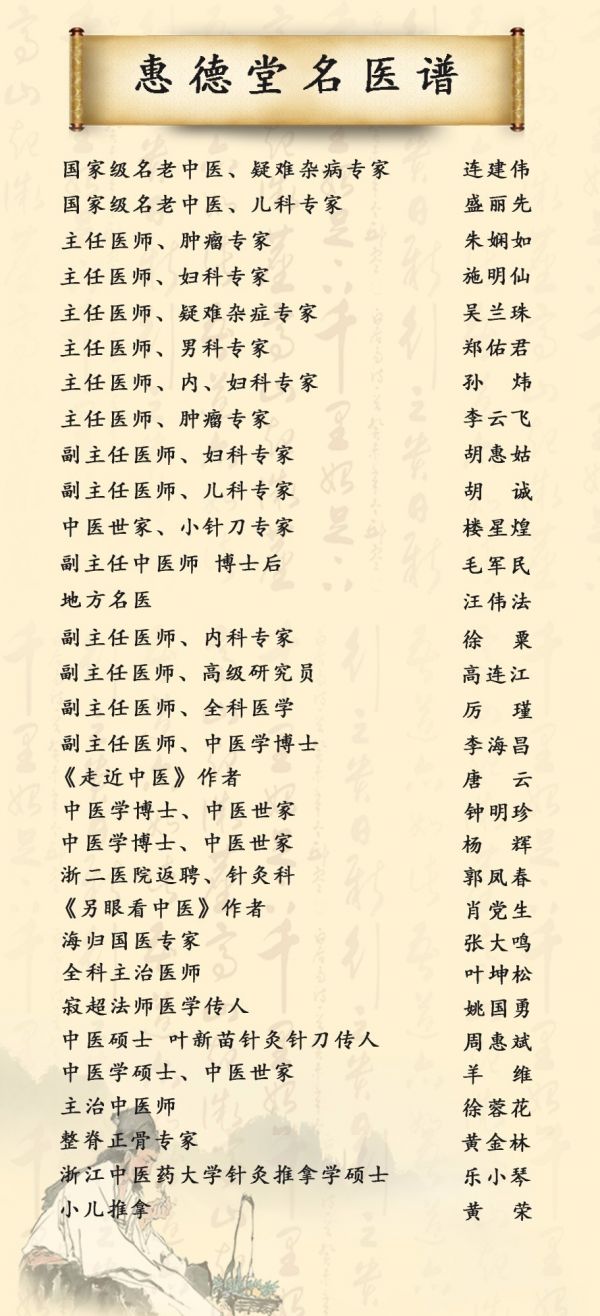 惠德堂名医谱
国家级名老中医、疑难杂病专家 连建伟
国家级名老中医、儿科专家 盛丽先
主任医师、肿瘤专家 朱娴如
主任医师、妇科专家 施明仙
主任医师、疑难杂症专家 吴兰珠
主任医师、男科专家 郑佑君
主任医师、内、妇科专家 孙 炜
主任医师、肿瘤专家 李云飞
副主任医师、妇科专家 胡惠姑
副主任医师、儿科专家 胡 诚
中医世家、小针刀专家 楼星煌
副主任中医师 博士后 毛军民
地方名医 汪伟法
副主任医师、内科专家 徐 粟
副主任医师、高级研究员 高连江
副主任医师、全科医学 厉 瑾
副主任医师、中医学博士 李海昌
《走近中医》作者 唐 云
中医学博士、中医世家 钟明珍
中医学博士、中医世家 杨 辉
浙二医院返聘、针灸科 郭凤春
《另眼看中医》作者 肖党生
海归国医专家 张大鸣
全科主治医师 叶坤松
寂超法师医学传人 姚国勇
中医硕士 叶新苗针灸针刀传人 周惠斌
中医学硕士、中医世家 羊 维
主治中医师 徐蓉花
整脊正骨专家 黄金林
浙江中医药大学针灸推拿学硕士 乐小琴
小儿推拿 黄 荣